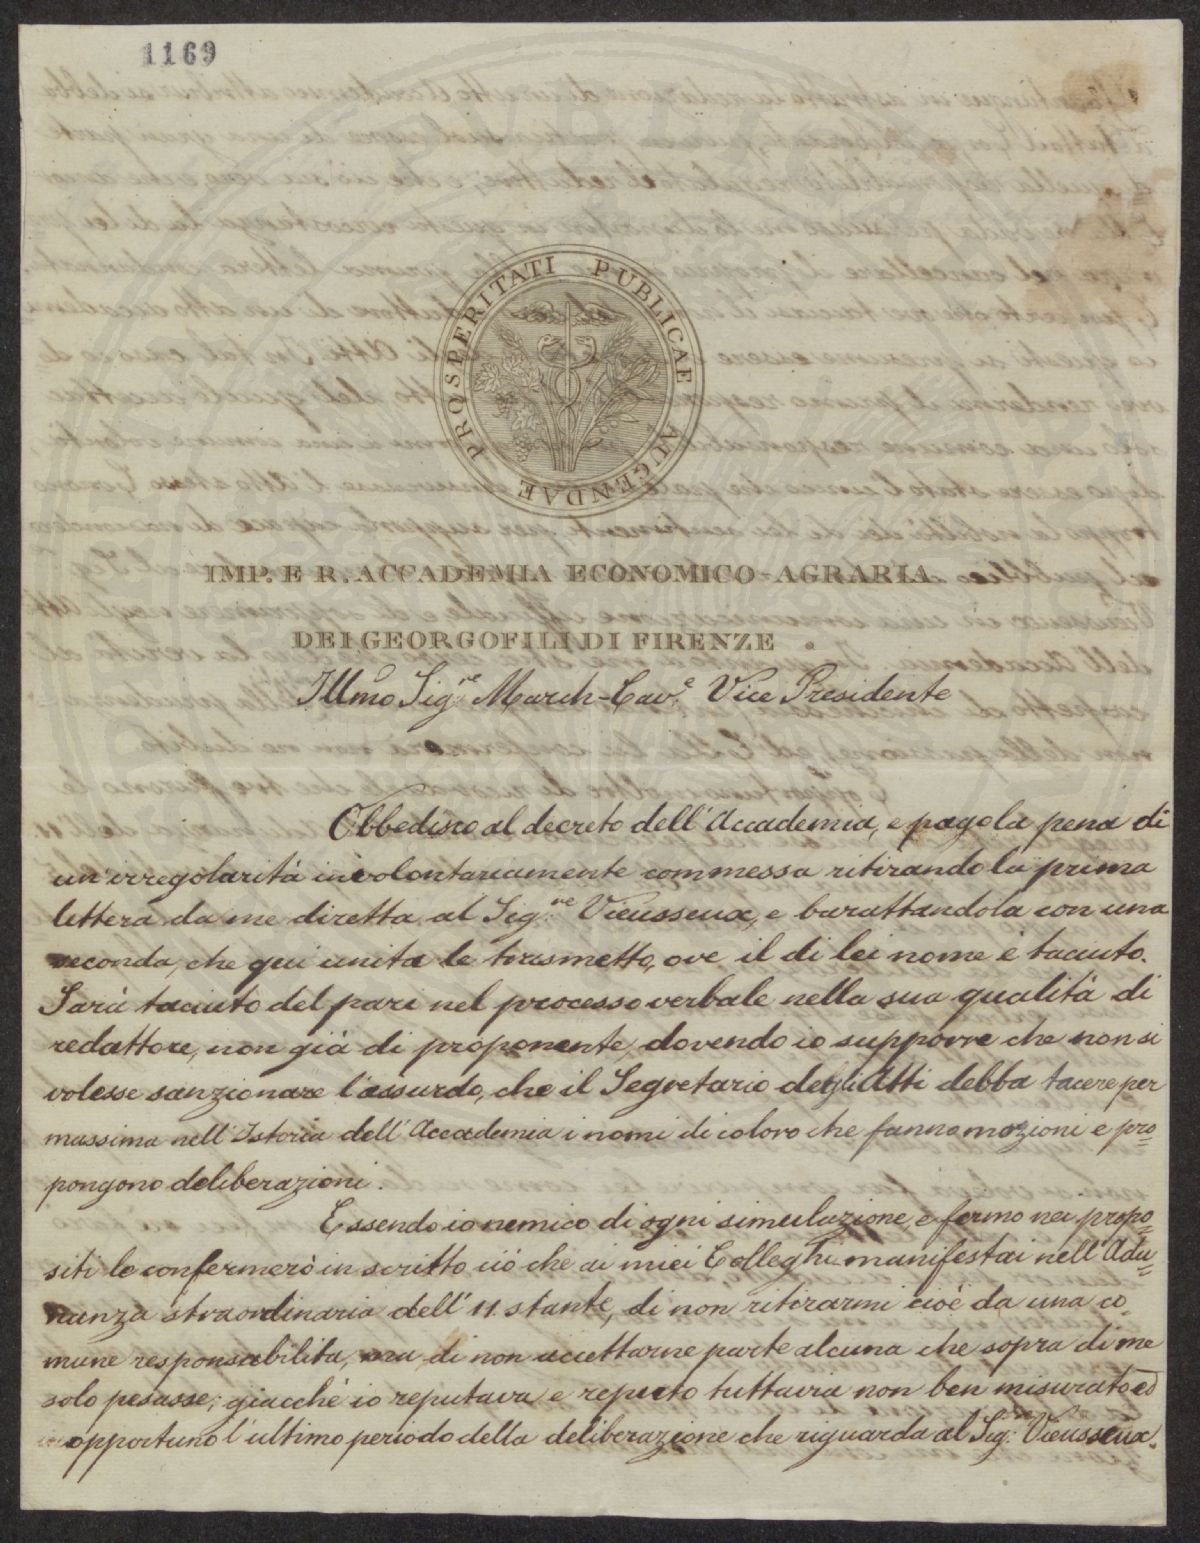 1169
PROSPERITATI PUBLICAE AUGENDAE
IMP. E R. ACCADEMIA ECONOMICO-AGRARIA
DEI GEORGOFILI DI FIRENZE
Illmo Sig.re March. Cav.e Vice Presidente
Obbedisco al decreto dell'Accademia, e pago la pena di
un'irregolarità involontariamente commessa ritirando la prima
lettera da me diretta al Sig.re Vieusseux, e barattandola con una
seconda, che qui unita le trasmetto, ove il di lei nome è taciuto.
Sarà taciuto del pari nel processo verbale nella sua qualità di
redattore, non già di proponente, dovendo io supporre che non si
volesse sanzionare l'assurdo, che il Segretario degli Atti debba tacere per
massima nell'Istoria dell'Accademia i nomi di coloro che fanno mozioni e pro=
pongono deliberazioni.
Essendo io nemico di ogni simulazione e fermo nei propo=
siti le confermerò in scritto ciò che ai miei Colleghi manifestai nell'Adu=
nanza straordinaria dell'11. stante, di non ritirarmi cioè da una co=
mune responsabilità, ma di non accettarne parte alcuna che sopra di me
solo pesasse; giacchè io reputava e reputo tuttavia non ben misurato ed
opportuno l'ultimo periodo della deliberazione che riguarda al Sig.re Vieusseux.